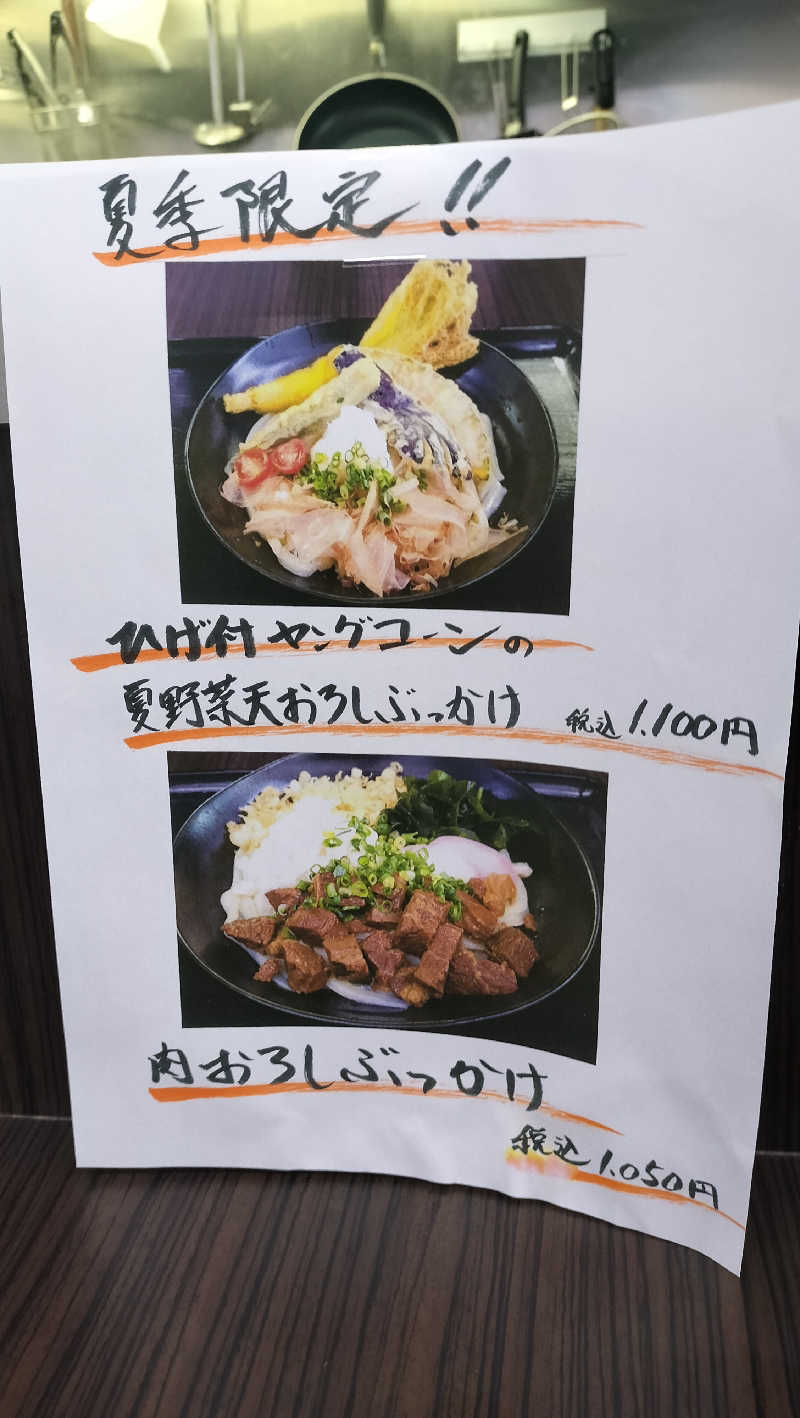 夏季限定!!
ひげ付ヤングコーンの
夏野菜天おろしぶっかけ 税込1.100円
肉おろしぶっかけ
税込1.050円